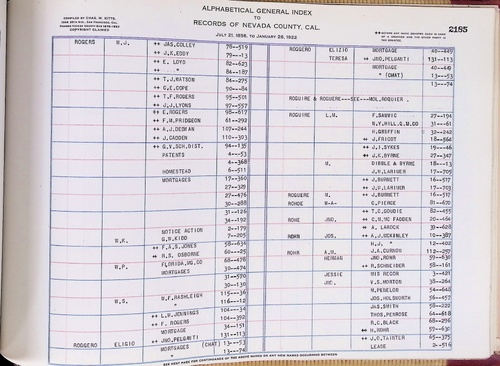 COMPILED BY CHAS. W. KITTS,
COPYRIGHT CLAIMED
ALPHABETICAL GENERAL INDEX
TO
RECORDS OF NEVADA COUNTY, CAL.
JULY 21, 1856, TO JANUARY 26, 1922
2185
ROGERS W.J. ++ JAS. COLLEY 78--519
++ J.K. EDDY 79--13
++ E. LLOYD 82--623
++ " 84--187
++ T.J. WATSON 86--275
++ G.E. COPE 90--84
++ T.F. ROGERS 95--501
++ J.J. LYONS 97--557
++ E. ROGERS 98--617
++ F.M. PRIDGEON 61--209
++ A.J. DEDMAN 107--244
++ J. CADDEN 110--303
++ G.V. SCH. DIST. 94--135
PATENTS 4---53
4--368
HOMESTEAD 6--511
MORTGAGES 17--360
27--329
27--476
30--288
31--126
34--192
NOTICE ACTION 2--179
W.K. G.W. KIDD 7--205
++ F.A.S. JONES 58--634
++ R.S. OSBORNE 60--25
W.P. FLORIDA MG. CO 68--476
MORTGAGES 30--474
31--570
30--130
W.S. W.F. RASHLEIGH 115--36
" 116--12
++ L.W. JENNINGS 104--34
++ F. ROGERS 104--392
MORTGAGE 34--151
++ JNO. PELGANTI 131--113
ROGGERO ELIGIO MORTGAGES (CHAT) 13---53
" 13---74
ROGGERO ELIZIO MORTGAGE 40--449
TERESA ++ JNO. PELGANTI 131--113
MORTGAGE 40--449
" (CHAT) 13---53
13---74
ROGUIRE & ROGUERE---SEE---MOL, ROQUIER.
ROGUIRE L.M. F. SANVIC 27--194
N.Y. HILL, Q.M. CO 31---61
H. GRIFFIN 32--242
++ J. FRICOT 18--564
++ J.I. SYKES 19--46
++ J.K. BYRNE 27--347
M. DIBBLE & BYRNE 18--13
J.N. LARIMER 17--705
++ J. BURNETT 16--517
++ J.W. LARIMER 17--703
ROGUERE M. ++ J. BURNETT 16--517
ROHDE W-A- C. PIERCE 81--670
++ T.C. GOUDIE 82--455
ROHE JNO. ++ C.W. MC FADDEN 20--464
++ A. LARDCK 37--628
ROHN JOS. ++ A.J. MCKINLEY 10--387
H.J. " 12--402
ROHR A.W. J.A. CURNOW 110--257
HERMAN JNO. ROHR 57--630
++ R. SCHNEIDER 58--161
JESSIE MIS RECOR 3--421
JNO. V.S. MORTON 38--264
M. PENELON 58--648
JOS. HOLSWORTH 56--457
JAS. SMITH 55--227
THOS. PENROSE 64--618
R.C. BLACK 68--296
++ H. ROHR 57--630
++ J.C. TAINTER 65--375
LEASE 2--516
SEE VERY PAGE FOR CONTINUANCE OF THE ABOVE NAMES OR ANY NEW NAMES OCCURRING BETWEEN